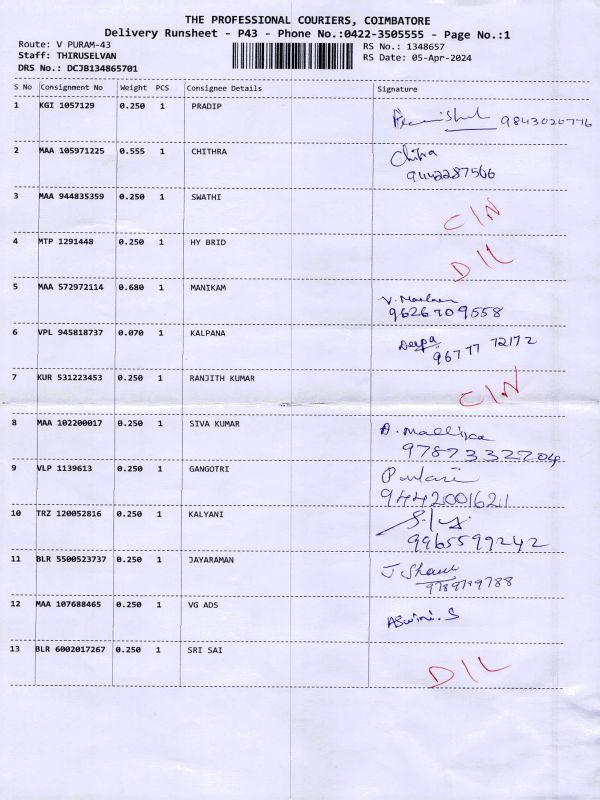 THE PROFESSIONAL COURIERS, COIMBATORE
Delivery Runsheet - P43 - Phone No.:0422-3505555 - Page No.:1
Route: V PURAM-43 RS No.: 1348657
Staff: THIRUSELVAN RS Date: 05-Apr-2024
DRS No.: DCJB134865701
S No Consignment No Weight PCS Consignee Details Signature
1 KGI 1057129 0.250 1 PRADIP
9843020776
2 MAA 105971225 0.555 1 CHITHRA Chitra
9442287506
3 MAA 944835359 0.250 1 SWATHI C/N
4 MTP 1291448 0.250 1 HY BRID D/L
5 MAA 572972114 0.680 1 MANIKAM V.
9626709558
6 VPL 945818737 0.070 1 KALPANA Deepa
96777 72172
7 KUR 531223453 0.250 1 RANJITH KUMAR C/N
8 MAA 102200017 0.250 1 SIVA KUMAR A. Mallika
9787332704
9 VLP 1139613 0.250 1 GANGOTRI
9442001621
10 TRZ 120052816 0.250 1 KALYANI
9965599242
11 BLR 5500523737 0.250 1 JAYARAMAN J
9789799788
12 MAA 107688465 0.250 1 VG ADS Aswini.S
13 BLR 6002017267 0.250 1 SRI SAI D/L